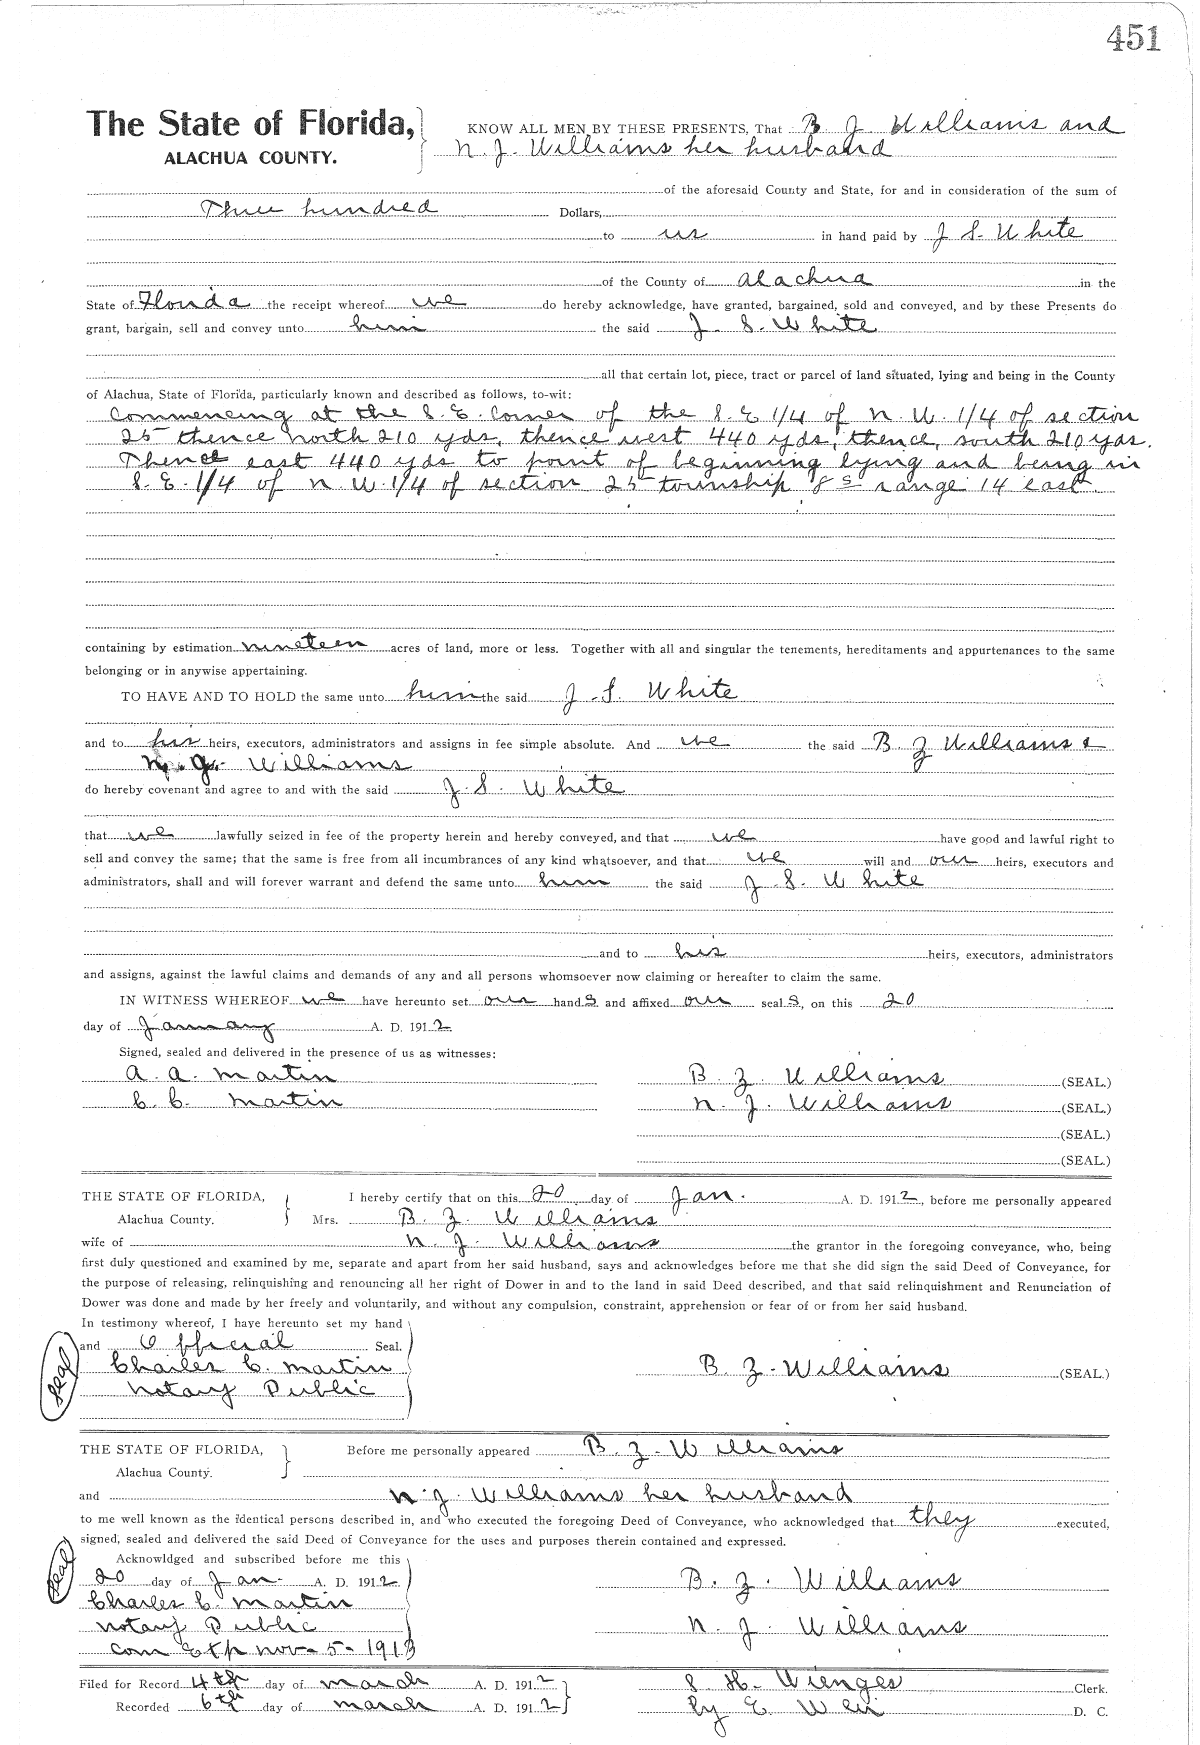 451
The State of Florida, KNOW ALL MEN BY THESE PRESENTS, That B Z Williams and
ALACHUA COUNTY. N. J. Williams her husband
of the aforesaid County and State, for and in consideration of the sum of
Three hundred Dollars,
to us in hand paid by J S. White
of the County of Alachua in the
State of Florida the receipt whereof we do hereby acknowledge, have granted, bargained, sold and conveyed, and by these Presents do
grant, bargain, sell and convey unto him the said J. S. White
all that certain lot, piece, tract or parcel of land situated, lying and being in the County
of Alachua, State of Florida, particularly known and described as follows, to-wit:
Commencing at the S. E. Corner of the S. E 1/4 of N. W. 1/4 of section
25 thence north 210 yds, thence west 440 yds, thence, south 210 yds.
Thence east 440 yds to point of beginning lying and being in
S. E. 1/4 of N. W. 1/4 of section 25 township 8 S range 14 east.
containing by estimation nineteen acres of land, more or less. Together with all and singular the tenements, hereditaments and appurtenances to the same
belonging or in anywise appertaining.
TO HAVE AND TO HOLD the same unto him the said J. S. White
and to his heirs, executors, administrators and assigns in fee simple absolute. And we the said B Z Williams &
N. J. Williams
do hereby covenant and agree to and with the said J. S. White
that we lawfully seized in fee of the property herein and hereby conveyed, and that we have good and lawful right to
sell and convey the same; that the same is free from all incumbrances of any kind whatsoever, and that we will and our heirs, executors and
administrators, shall and will forever warrant and defend the same unto him the said J. S. White
and to his heirs, executors, administrators
and assigns, against the lawful claims and demands of any and all persons whomsoever now claiming or hereafter to claim the same.
IN WITNESS WHEREOF we have hereunto set our hand s and affixed our seal s, on this 20
day of January A. D. 1912
Signed, sealed and delivered in the presence of us as witnesses:
A. A. Martin B. Z. Williams (SEAL.)
C. C. Martin N. J. Williams (SEAL.)
(SEAL.)
(SEAL.)
THE STATE OF FLORIDA, I hereby certify that on this 20 day of Jan. A. D. 1912, before me personally appeared
Alachua County. Mrs. B. Z. Williams
wife of N. J. Williams the grantor in the foregoing conveyance, who, being
first duly questioned and examined by me, separate and apart from her said husband, says and acknowledges before me that she did sign the said Deed of Conveyance, for
the purpose of releasing, relinquishing and renouncing all her right of Dower in and to the land in said Deed described, and that said relinquishment and Renunciation of
Dower was done and made by her freely and voluntarily, and without any compulsion, constraint, apprehension or fear of or from her said husband.
In testimony whereof, I have hereunto set my hand
and Official Seal.
Seal Charles C. Martin B. Z. Williams (SEAL.)
Notary Public
THE STATE OF FLORIDA, Before me personally appeared B. Z. Williams
Alachua County.
and N. J. Williams her husband
to me well known as the identical persons described in, and who executed the foregoing Deed of Conveyance, who acknowledged that they executed,
signed, sealed and delivered the said Deed of Conveyance for the uses and purposes therein contained and expressed.
Acknowldged and subscribed before me this
Seal 20 day of Jan. A. D. 1912 B. Z. Williams
Charles C. Martin
Notary Public N. J. Williams
Com Exp Nov - 5 - 1913
Filed for Record 4th day of March A. D. 1912 S. H. Wienges Clerk.
Recorded 6th day of March A. D. 1912 By E. Weir D. C.